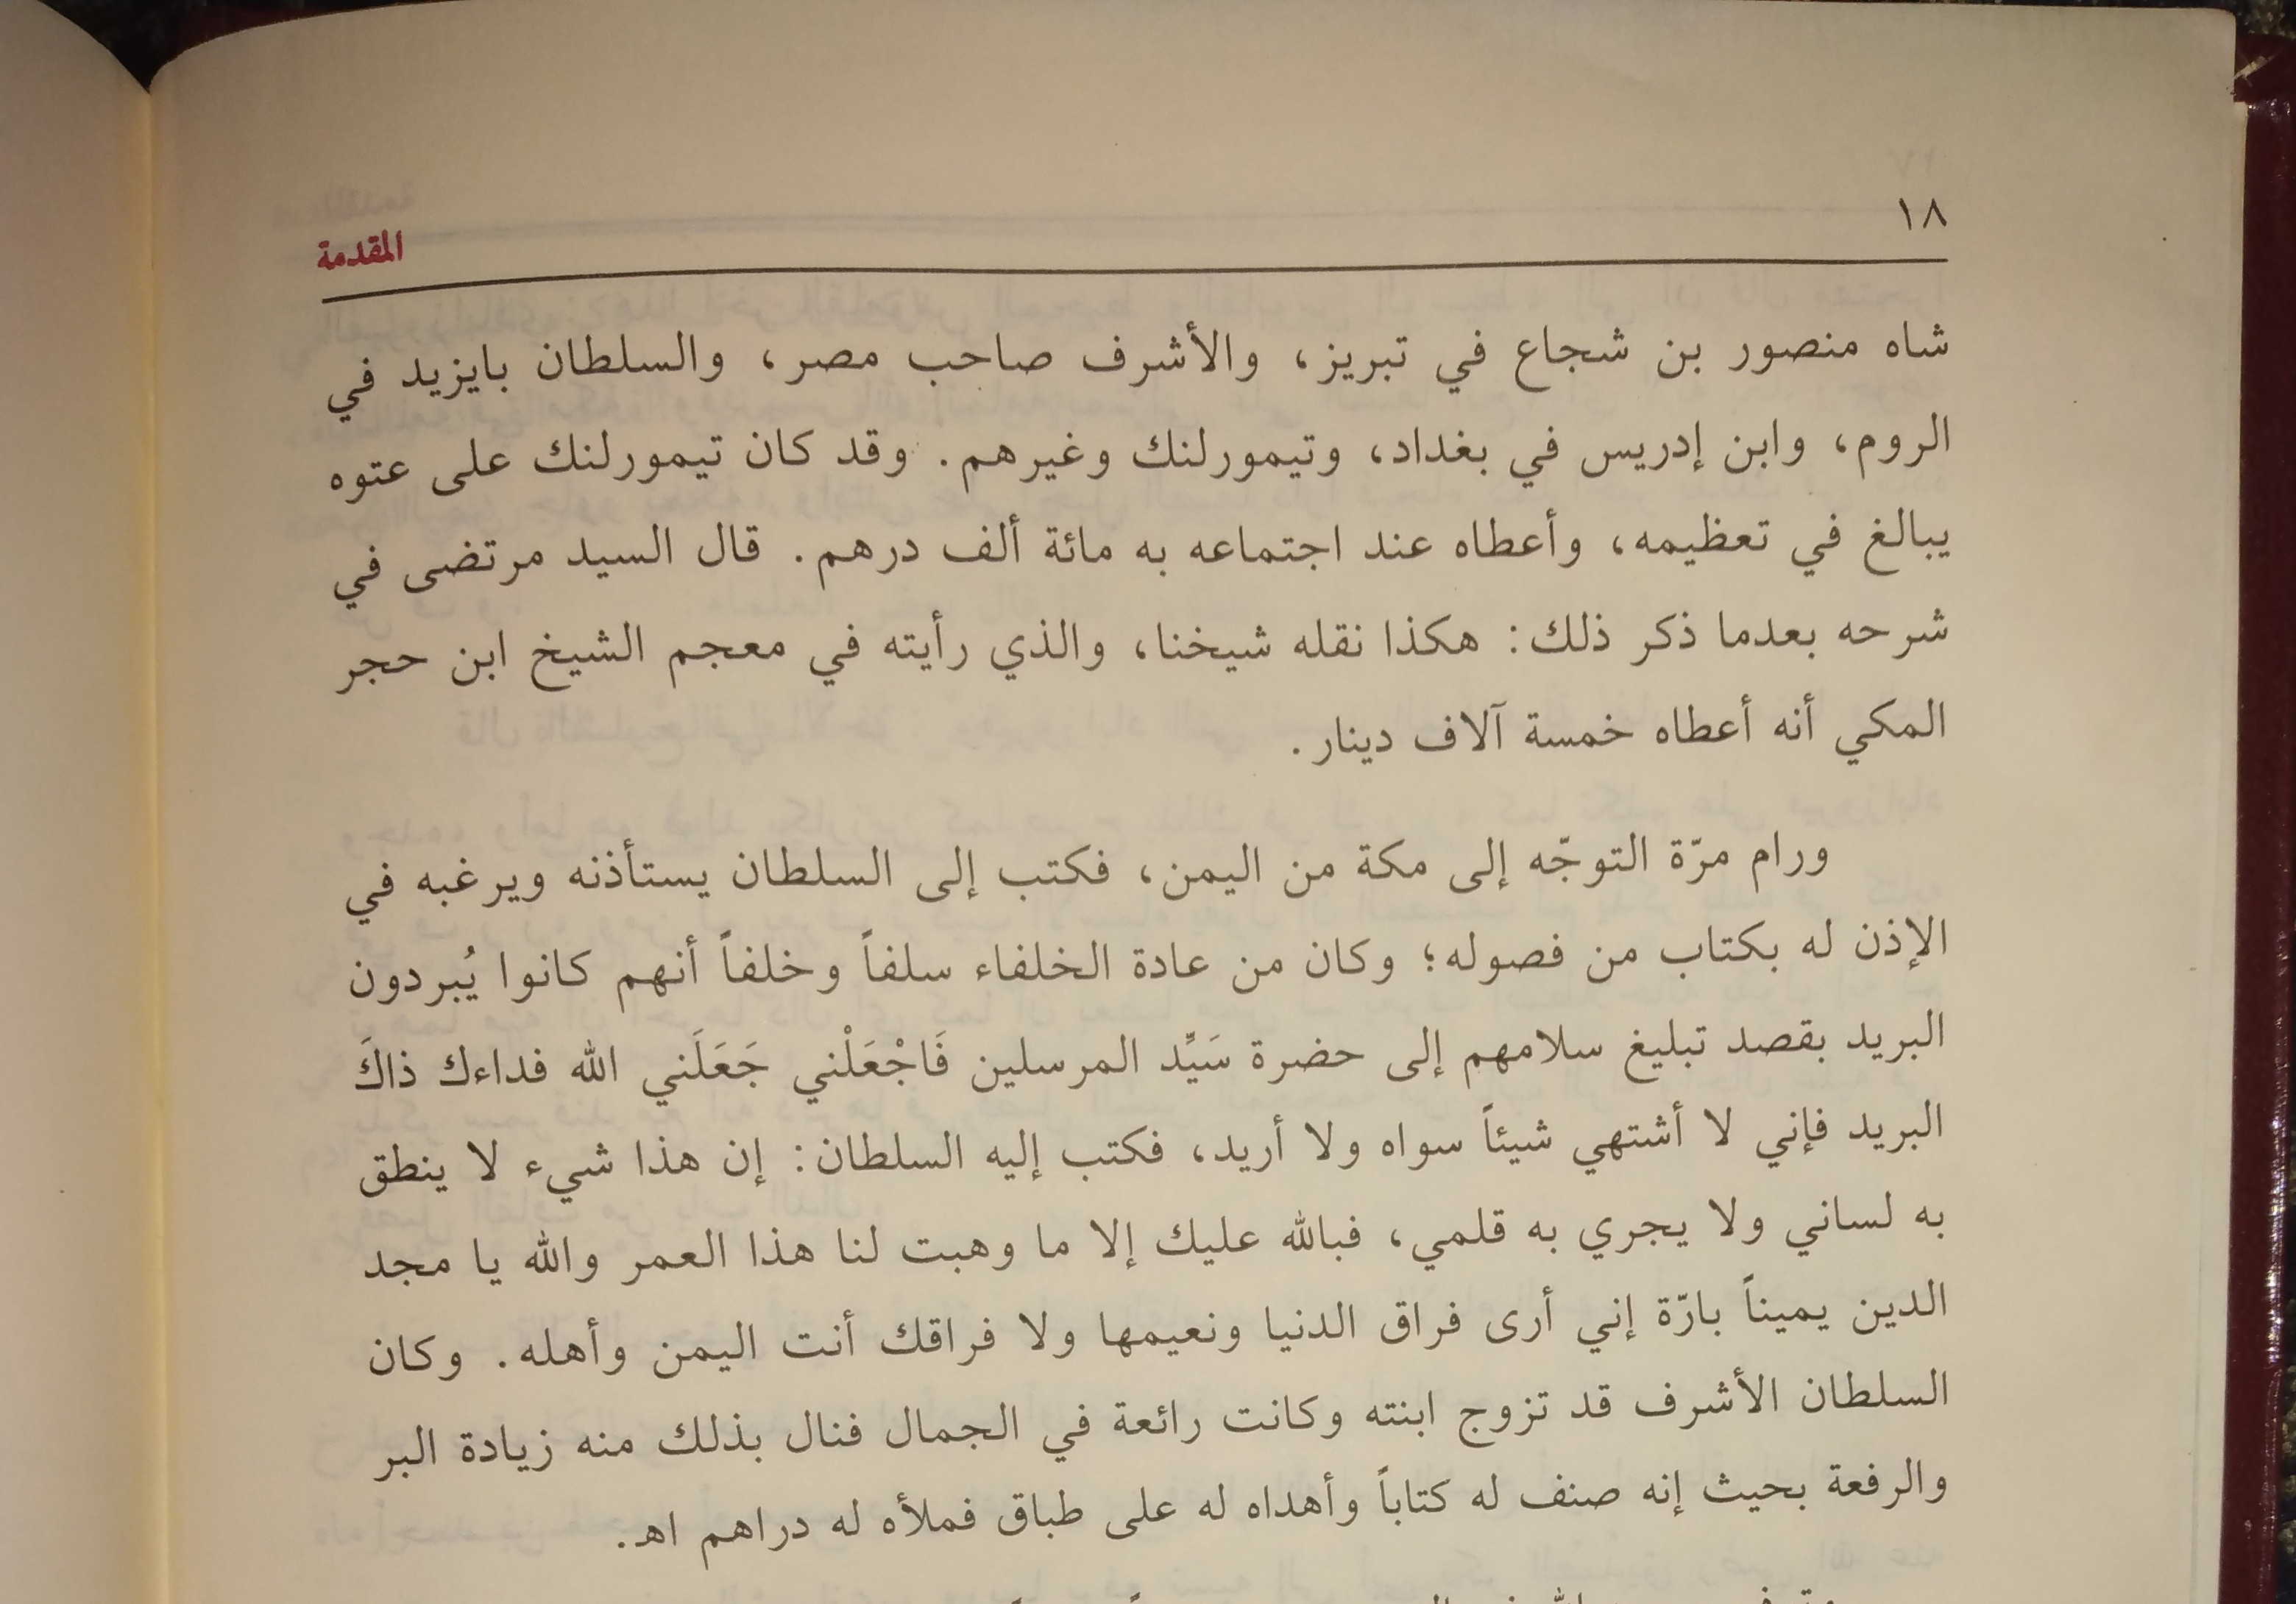 ١٨
المقدمة
شاه منصور بن شجاع في تبريز، والأشرف صاحب مصر، والسلطان بايزيد في
الروم، وابن إدريس في بغداد، وتيمورلنك وغيرهم. وقد كان تيمورلنك على عتوه
يبالغ في تعظيمه، وأعطاه عند اجتماعه به مائة ألف درهم. قال السيد مرتضى في
شرحه بعدما ذكر ذلك: هكذا نقله شيخنا، والذي رأيته في معجم الشيخ ابن حجر
المكي أنه أعطاه خمسة آلاف دينار.
ورام مرّة التوجّه إلى مكة من اليمن، فكتب إلى السلطان يستأذنه ويرغبه في
الإذن له بكتاب من فصوله؛ وكان من عادة الخلفاء سلفاً وخلفاً أنهم كانوا يُبردون
البريد بقصد تبليغ سلامهم إلى حضرة سَيِّد المرسلين فَاجْعَلْني جَعَلَني الله فداءك ذاكَ
البريد فإني لا أشتهي شيئاً سواه ولا أريد، فكتب إليه السلطان: إن هذا شيء لا ينطق
به لساني ولا يجري به قلمي، فبالله عليك إلا ما وهبت لنا هذا العمر والله يا مجد
الدين يميناً بارّة إني أرى فراق الدنيا ونعيمها ولا فراقك أنت اليمن وأهله. وكان
السلطان الأشرف قد تزوج ابنته وكانت رائعة في الجمال فنال بذلك منه زيادة البر
والرفعة بحيث إنه صنف له كتاباً وأهداه له على طباق فملأه له دراهم اهـ.